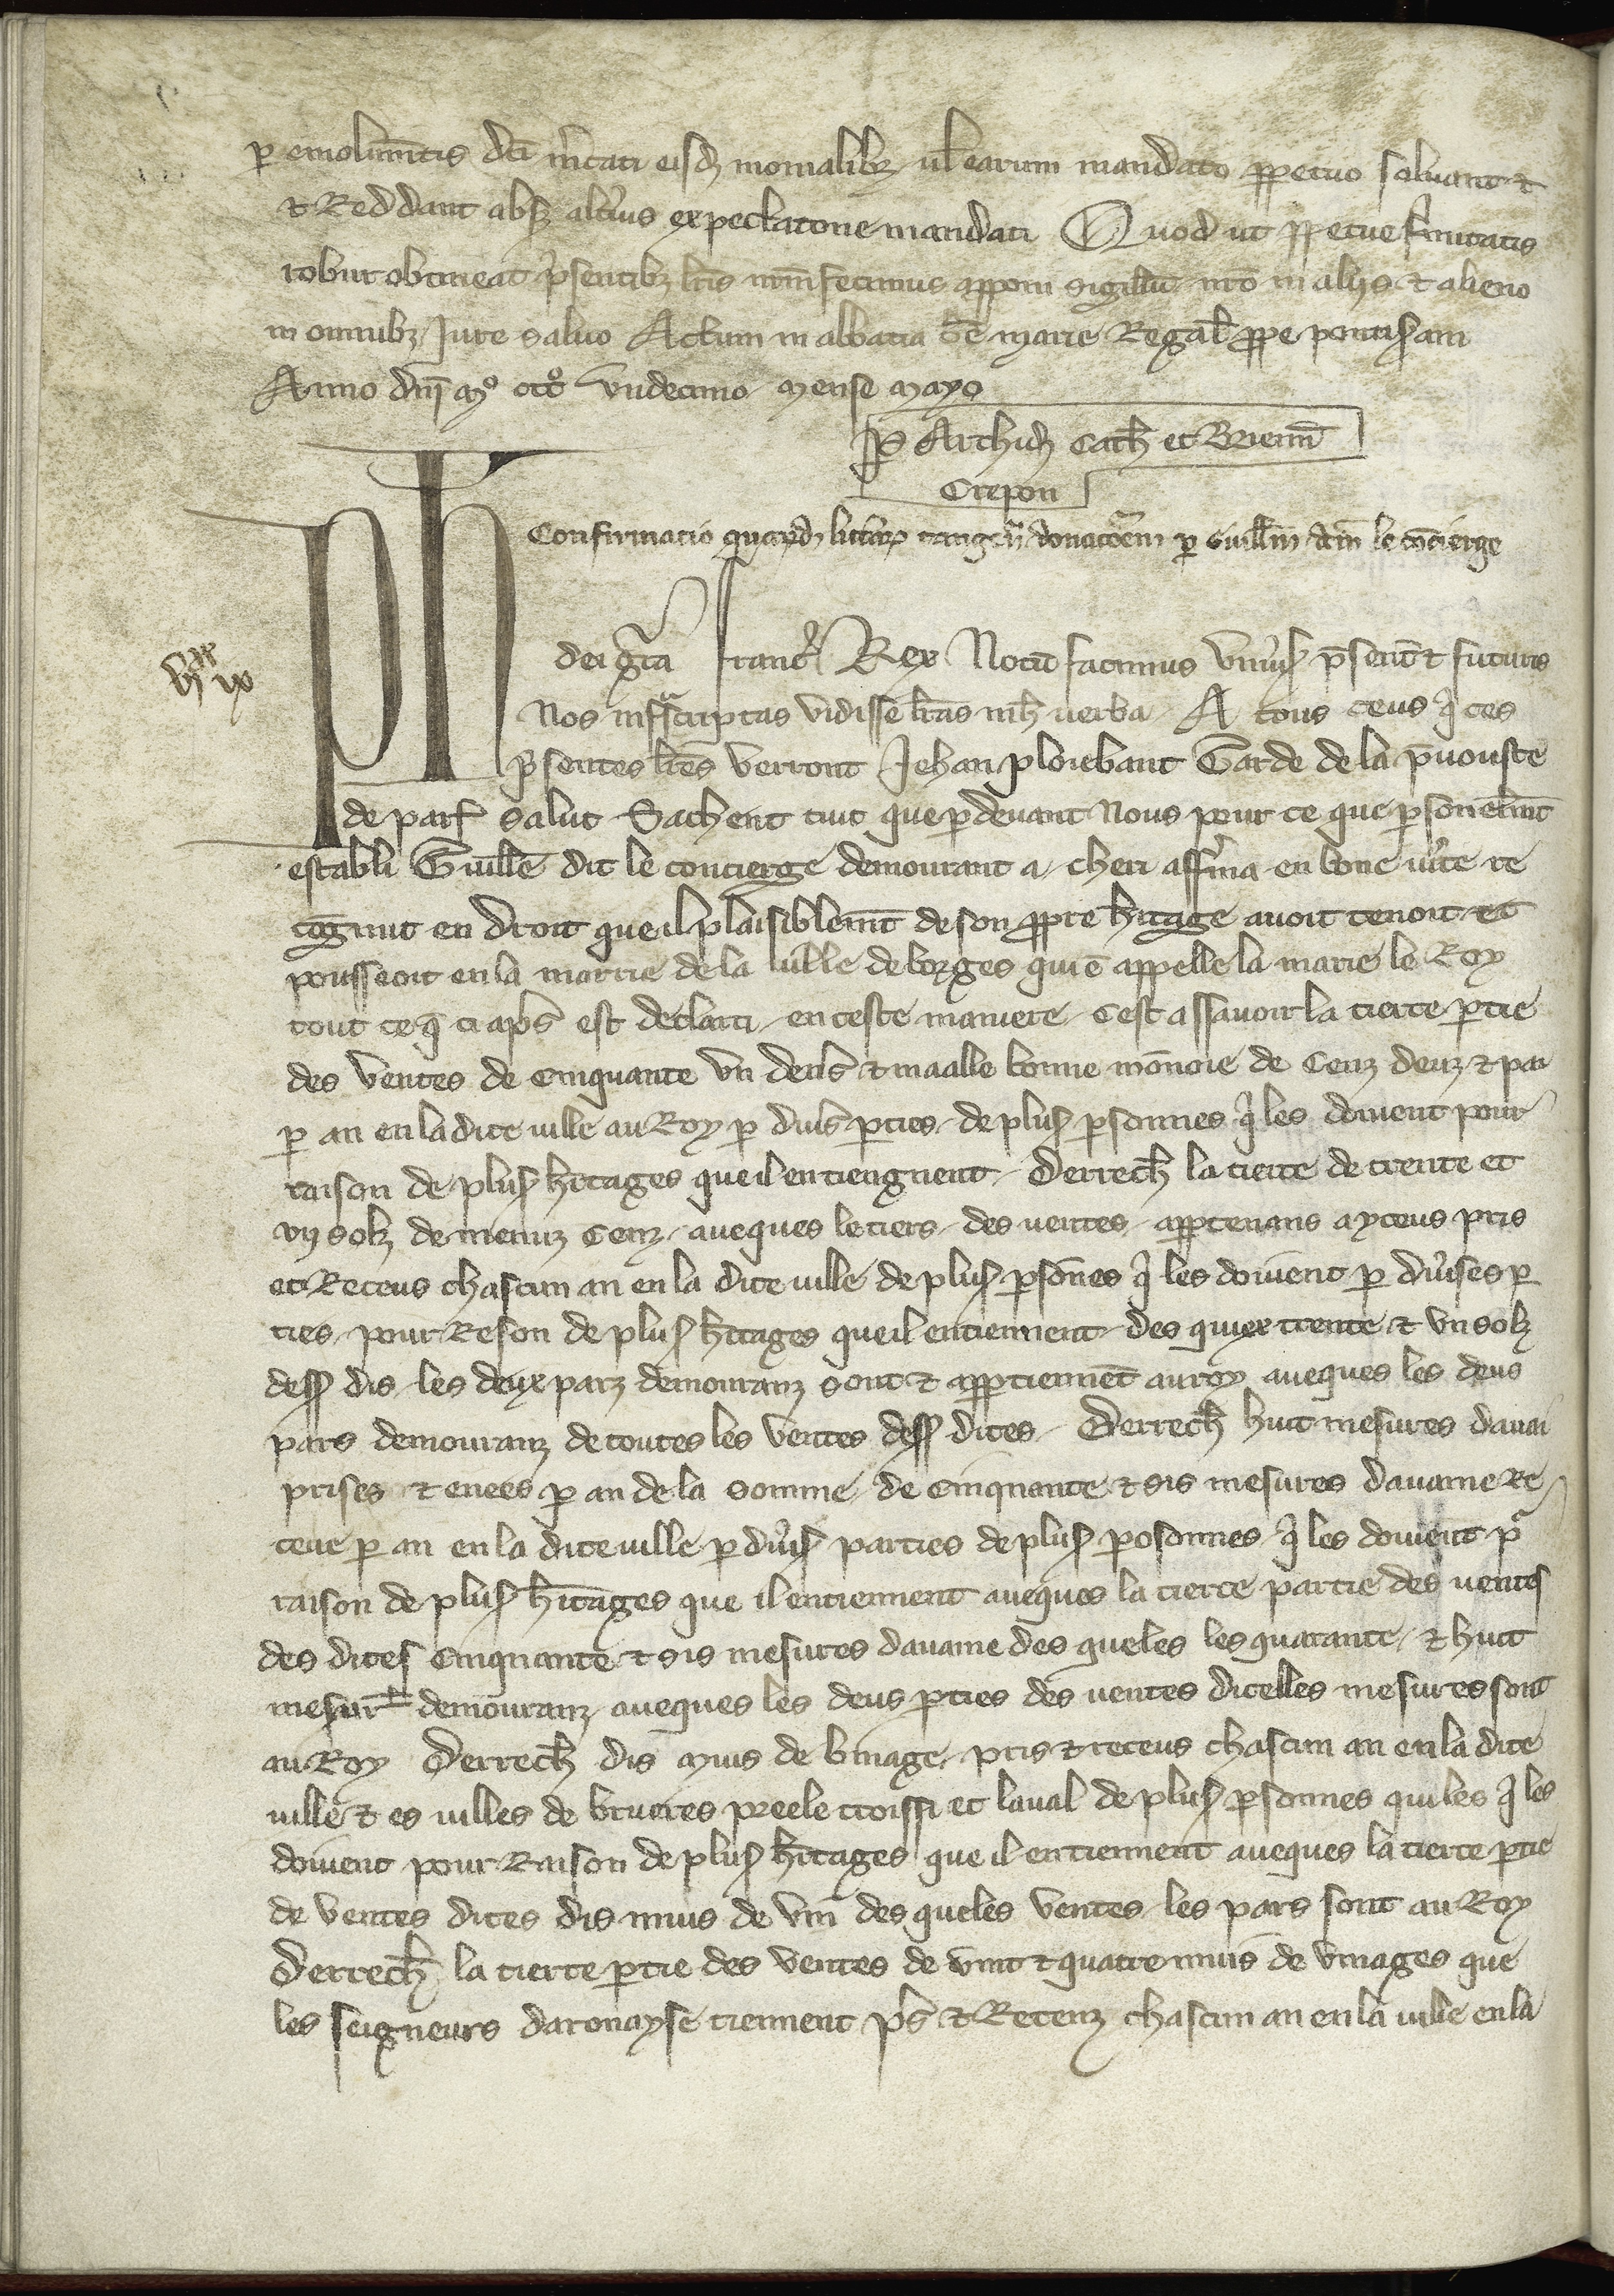 p emolumtis dci mcati eisdz monialibz ul earum mandato ppetuo soluant et
et Reddant absz alterius expectatone mandati Quod ut ppetue firmitatis
robur obtineat psentibz lris nrm fecimus apponi sigillum nro in aliis et alieno
in omnibz Iure saluo Actum in abbatia be marie Regal ppe pontisaram
Anno dni mo ccco undecimo mense mayo
P Archid Cath et Brienn
Crepon
Confirmatio quarundam litterarum tangen donacoem p Guillm dcm le concierge
vixx ix
Ph dei gra Franc Rex Notum facimus uniuersis psentibz et futuris
Nos infrascriptas vidisse lras in hec uerba A tous ceus qi ces
psentes lres verront Jehan ploiebaut Garde de la pvouste
de paris Salut Sachent tuit que pdevant Nous pour ce que psonelmt
establi Guille dit le concierge demourant a cheri afferma en bone verite re
cognut en droit que il plaisiblemt de son ppre heritage avoit tenoit et
pousseoit en la mairie de la ville de borges qui e appelle la marie le Roy
tout ce q ci aps est declarci en ceste maniere Cest assavoir la tierce ptie
des ventes de cinquante un deniers et maalle bonne monnoie de Cenz deuz et pai
p an en la dite ville au Roy p divs pties de plus psonnes qi les doivent pour
raison de plus hitages que il en tiengnent Derrech la tierce de trente et
vij solz de menuz Cenz aveques le tiers des ventes apptenans a yceus pris
et Receus chascun an en la dite ville de plus psones qi les doivent p diverses p
ties pour Reson de plus hitages que il en tiennent des quiex trente et un solz
dess dis les deux parz demouranz sont et apptiennet au roy aveques les deus
pars demouranz de toutes les ventes dess dites Derrech huit mesures davai
prises et enees p an de la somme de cinquante et sis mesures davaine Re
ceue p an en la dite ville p divis parties de plus psonnes qi les doivent pr
raison de plus hitages que il en tiennent aveques la tierce partie des ventes
des dites cinquante et sis mesures davaine des queles les quarante et huit
mesures demouranz aveques les deus pties des ventes dicelles mesures sont
au Roy Derrech dis muis de vinage pris et receus chascun an en la dite
ville et es villes de brueres preele troissi et laval de plus psonnes qui les qi les
doivent pour Raison de plus hitages que il en tiennent aveques la tierce ptie
de ventes dites dis muis de vin des queles ventes les pars sont au Roy
Derrech la tierce ptie des ventes de vint et quatre muis de vinages que
les seigneurs daronayse tiennent ps et Recenz chascun an en la ville en la